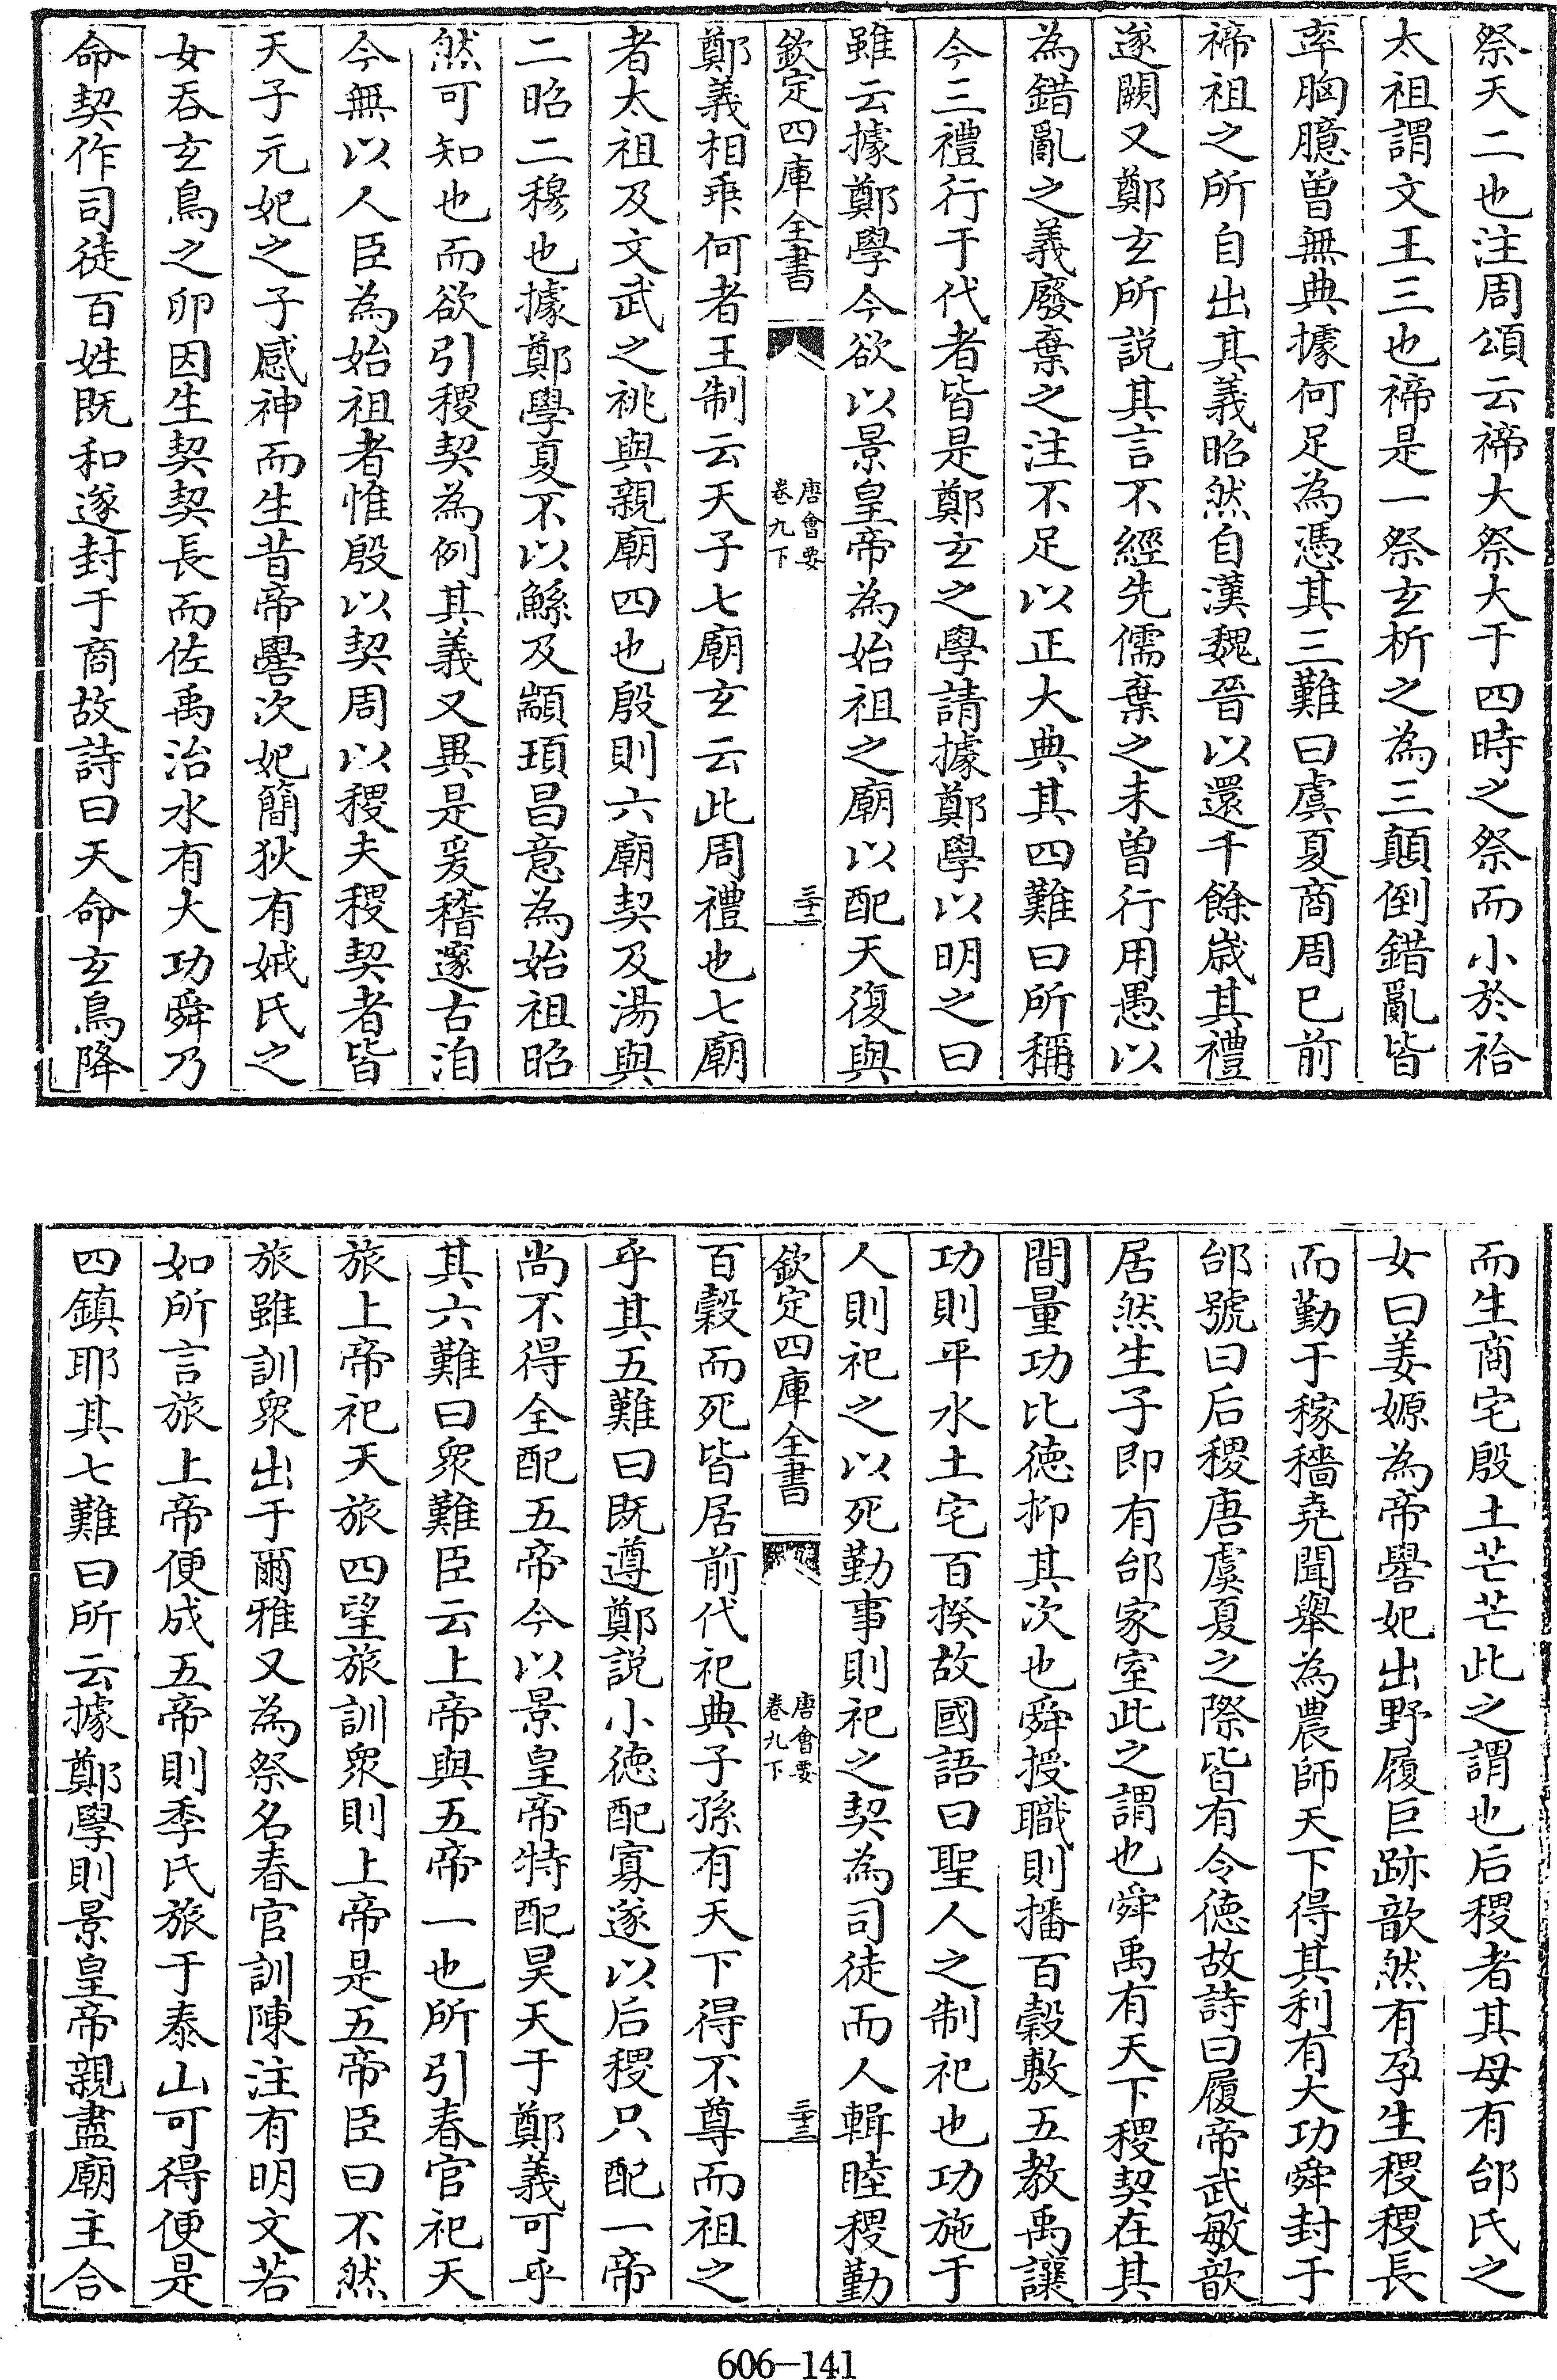 祭天二也注周頌云禘大祭大于四時之祭而小於祫
太祖謂文王三也禘是一祭玄析之為三顛倒錯亂皆
率胸臆曽無典據何足為憑其三難曰虞夏商周已前
禘祖之所自出其義昭然自漢魏晉以還千餘嵗其禮
遂闕又鄭玄所說其言不經先儒棄之未曽行用愚以
為錯亂之義廢棄之注不足以正大典其四難曰所稱
今三禮行于代者皆是鄭玄之學請據鄭學以明之曰
雖云據鄭學今欲以景皇帝為始祖之廟以配天復與
欽定四庫全書
唐會要
卷九下
三十二
鄭義相乖何者王制云天子七廟玄云此周禮也七廟
者太祖及文武之祧與親廟四也殷則六廟契及湯與
二昭二穆也據鄭學夏不以鯀及顓頊昌意為始祖昭
然可知也而欲引稷契為例其義又異是爰稽邃古洎
今無以人臣為始祖者惟殷以契周以稷夫稷契者皆
天子元妃之子感神而生昔帝嚳次妃簡狄有娀氏之
女吞玄鳥之卵因生契契長而佐禹治水有大功舜乃
命契作司徒百姓既和遂封于商故詩曰天命玄鳥降
而生商宅殷土芒芒此之謂也后稷者其母有邰氏之
女曰姜嫄為帝嚳妃出野履巨跡歆然有孕生稷稷長
而勤于稼穡堯聞舉為農師天下得其利有大功舜封于
邰號曰后稷唐虞夏之際皆有令徳故詩曰履帝武敏歆
居然生子即有邰家室此之謂也舜禹有天下稷契在其
間量功比徳抑其次也舜授職則播百穀敷五教禹讓
功則平水土宅百揆故國語曰聖人之制祀也功施于
人則祀之以死勤事則祀之契為司徒而人輯睦稷勤
欽定四庫全書
唐會要
卷九下
三十三
百穀而死皆居前代祀典子孫有天下得不尊而祖之
乎其五難曰既遵鄭說小徳配寡遂以后稷只配一帝
尚不得全配五帝今以景皇帝特配昊天于鄭義可乎
其六難曰衆難臣云上帝與五帝一也所引春官祀天
旅上帝祀天旅四望旅訓衆則上帝是五帝臣曰不然
旅雖訓衆出于爾雅又為祭名春官訓陳注有明文若
如所言旅上帝便成五帝則季氏旅于泰山可得便是
四鎮耶其七難曰所云據鄭學則景皇帝親盡廟主合
606-141